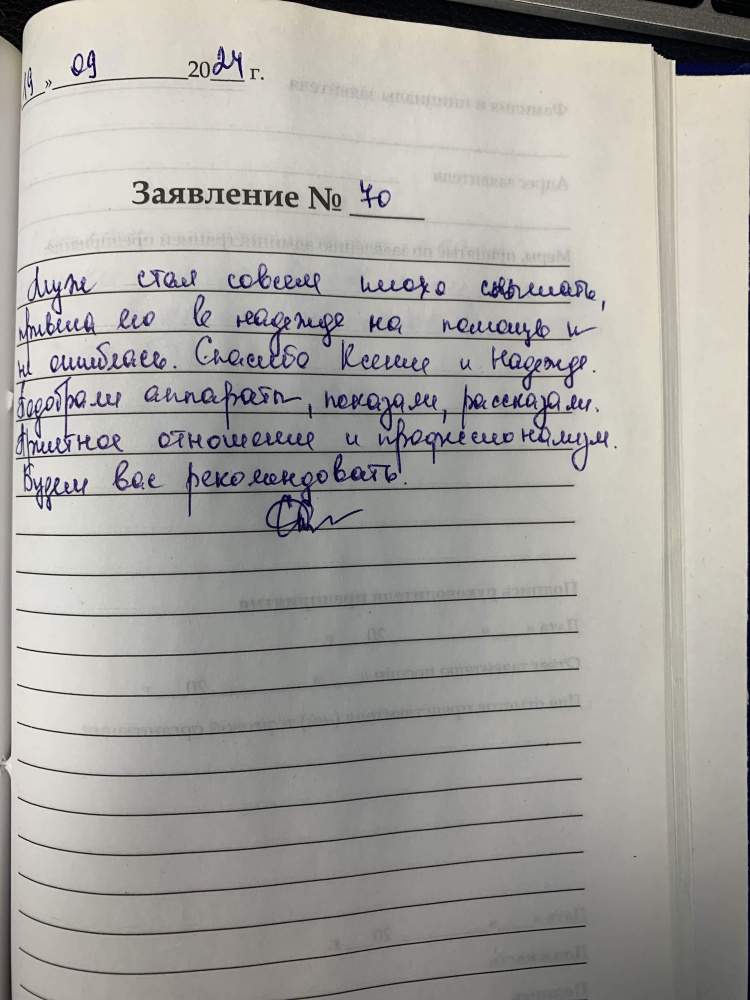 19 » 09 2024 г.
Заявление № 70
Муж стал совсем плохо слышать,
привела его в надежде на помощь и
не ошиблась. Спасибо Ксении и Надежде.
Подобрали аппараты, показали, рассказали.
Приятное отношение и профессионализм.
Будем вас рекомендовать.